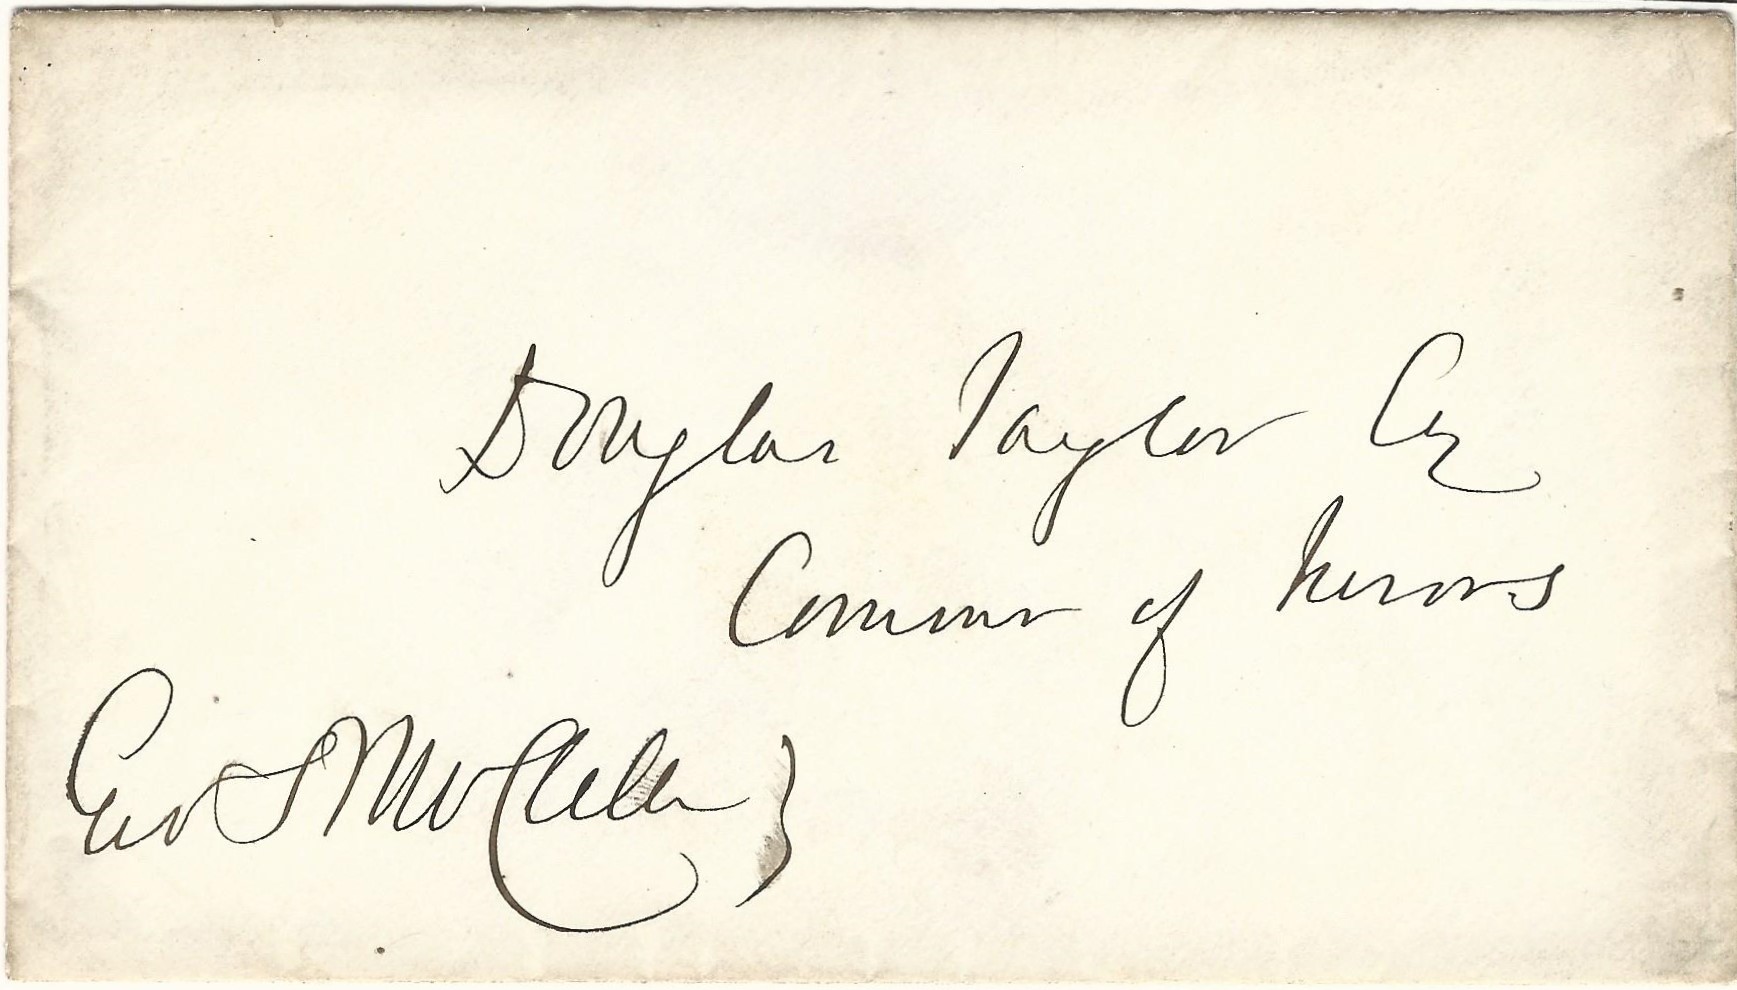 Douglas Taylor Esq
Commr of Jurors
Geo B McClellan